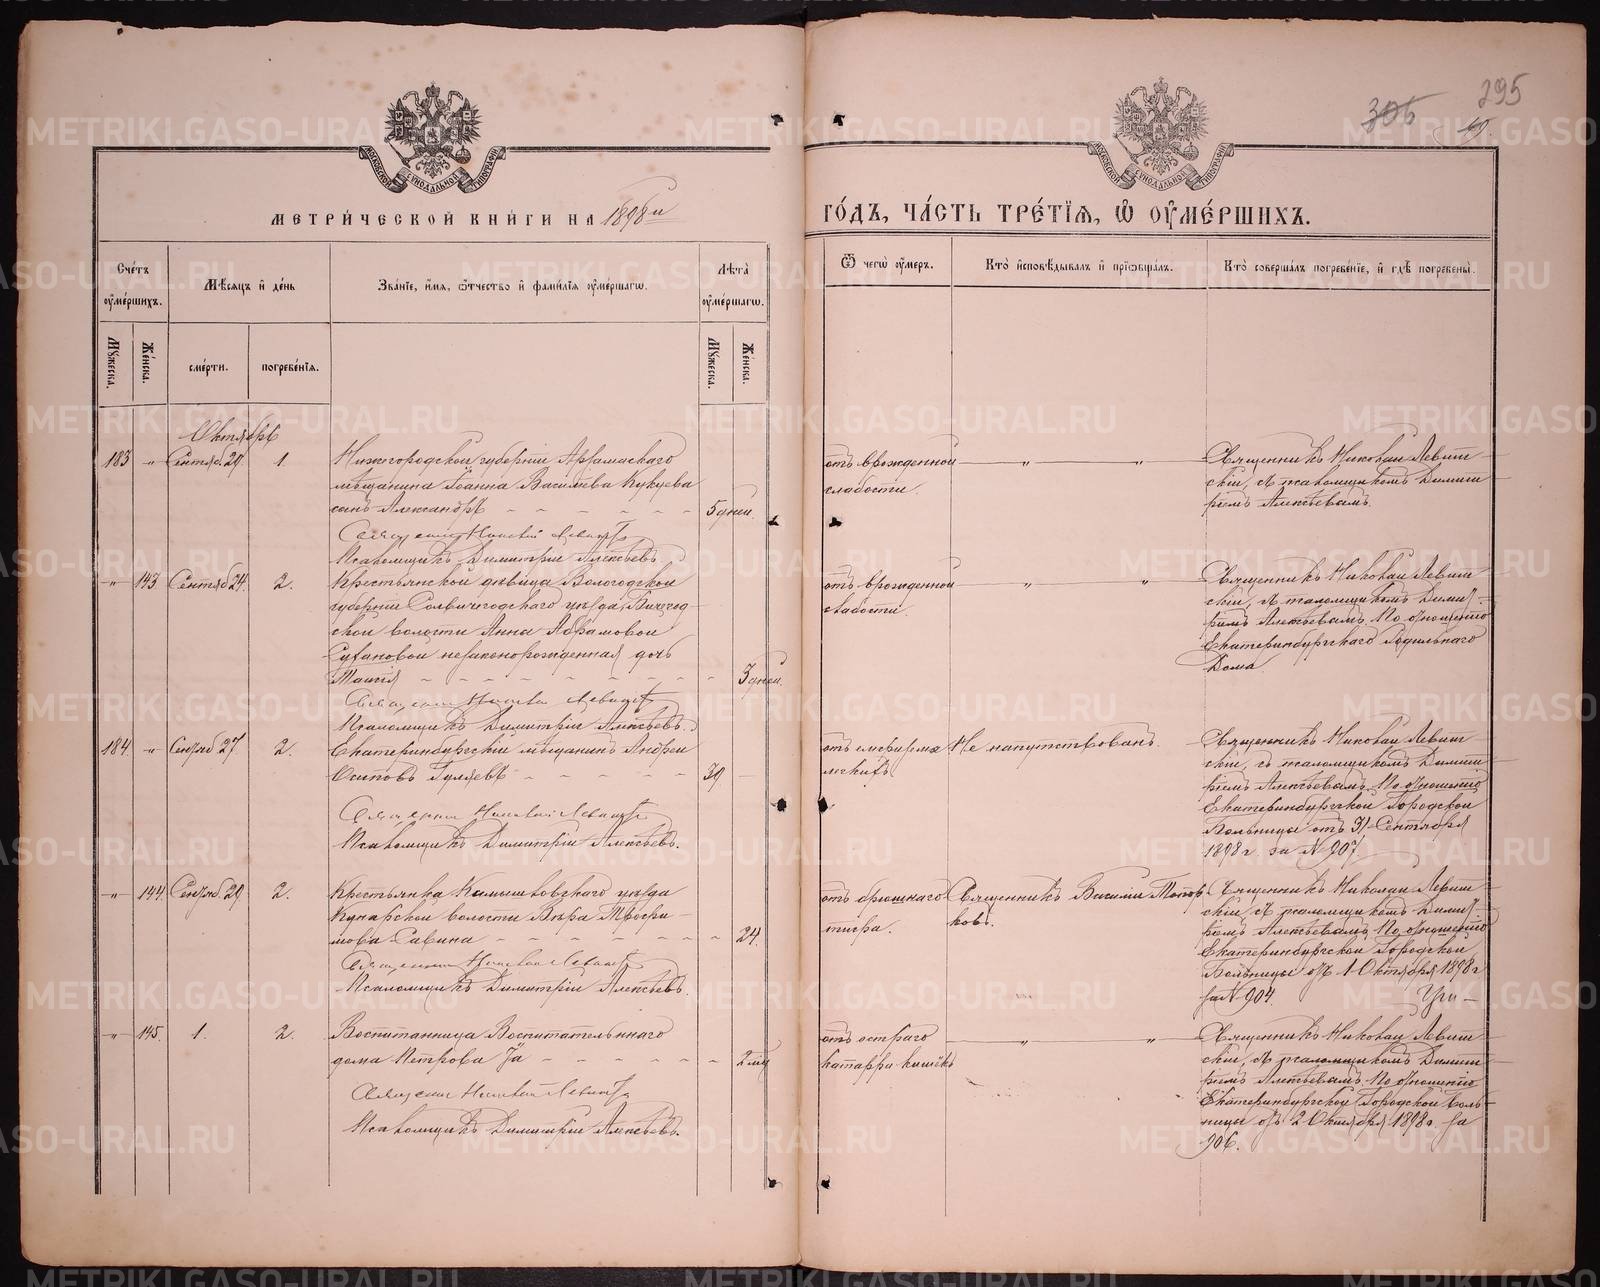 295
305
МЕТРИ́ЧЕСКОЙ КНИ́ГИ НА 1898 й
ГО́ДЪ, ЧА́СТЬ ТРЕ́ТЇѦ, Ѽ ОУ҆МЕ́РШИХЪ.
Сче́тъ оу҆ме́ршихъ.
Мѣ́сяцъ и҆ де́нь
Зва́нїе, и҆́мѧ, ѻ҆́тчество и҆ фами́лїѧ оу҆ме́ршагѡ.
Лѣ́та оу҆ме́ршагѡ.
Ѿ чегѡ̀ оу҆́меръ.
Кто̀ и҆сповѣ́дывалъ и҆ прїѡбща́лъ.
Кто̀ соверша́лъ погребе́нїе, и҆ гдѣ̀ погребены̀.
Мꙋ́жеска.
Же́нска.
сме́рти.
погребе́нїѧ.
Мꙋ́жеска.
Же́нска.
Октябрь
183 „ Сентяб. 29. 1. Нижегородской губерніи Арзамаскаго
мѣщанина Іоанна Васильева Кукуева
сынъ Александръ 5 дней.
отъ врожденной
слабости.
„ „
Священникъ Николай Левит-
скій, съ псаломщикомъ Димит-
ріемъ Алексѣевымъ.
Священникъ Николай Левитскій
Псаломщикъ Димитрій Алексѣевъ
„ 143. Сентяб 24. 2. Крестьянской дѣвицы Вологодской
губерніи Сольвычегодскаго уѣзда,
ской волости Анны Абрамовой
незаконорожденная дочь
Таисія 3 дней.
отъ врожденной
слабости.
„ „
Священникъ Николай Левит-
скій, съ псаломщикомъ Димит-
ріемъ Алексѣевымъ. По отношенію
Екатеринбургскаго Родильнаго
Дома.
Священникъ Николай Левитскій
Псаломщикъ Димитрій Алексѣевъ.
184. „ Сентяб 27 2. Екатеринбургскій мѣщанинъ Андрей
Осиповъ Гуляевъ 39
легкихъ
Не напутствованъ.
Священникъ Николай Левит-
скій, съ псаломщикомъ Димит-
ріемъ Алексѣевымъ. По отношенію
Екатеринбургской Городской
Больницы отъ Сентября
1898 г. за № 907
Священникъ Николай Левитскій
Псаломщикъ Димитрій Алексѣевъ.
„ 144. Сентяб. 29 2. Крестьянка Камышловскаго уѣзда
Кунарской волости Вѣра Трофи-
мова Савина 24.
отъ брюшнаго
тифа.
Священникъ Василій Топор-
ковъ.
Священникъ Николай Левит-
скій, съ псаломщикомъ Димит-
ріемъ Алексѣевымъ. По отношенію
Екатеринбургской Городской
Больницы отъ 1 Октября 1898 г
за № 904.
Священникъ Николай Левитскій
Псаломщикъ Димитрій Алексѣевъ.
„ 145. 1. 2. Воспитанница Воспитательнаго
дома Петрова 2 мѣс
отъ остраго
катарра кишекъ
„ „
Священникъ Николай Левит-
скій, съ псаломщикомъ Димит-
ріемъ Алексѣевымъ. По отношенію
Екатеринбургской Городской Боль-
ницы отъ 2 Октября 1898 г. за
906.
Священникъ Николай Левитскій
Псаломщикъ Димитрій Алексѣевъ.
METRIKI.GASO-URAL.RU